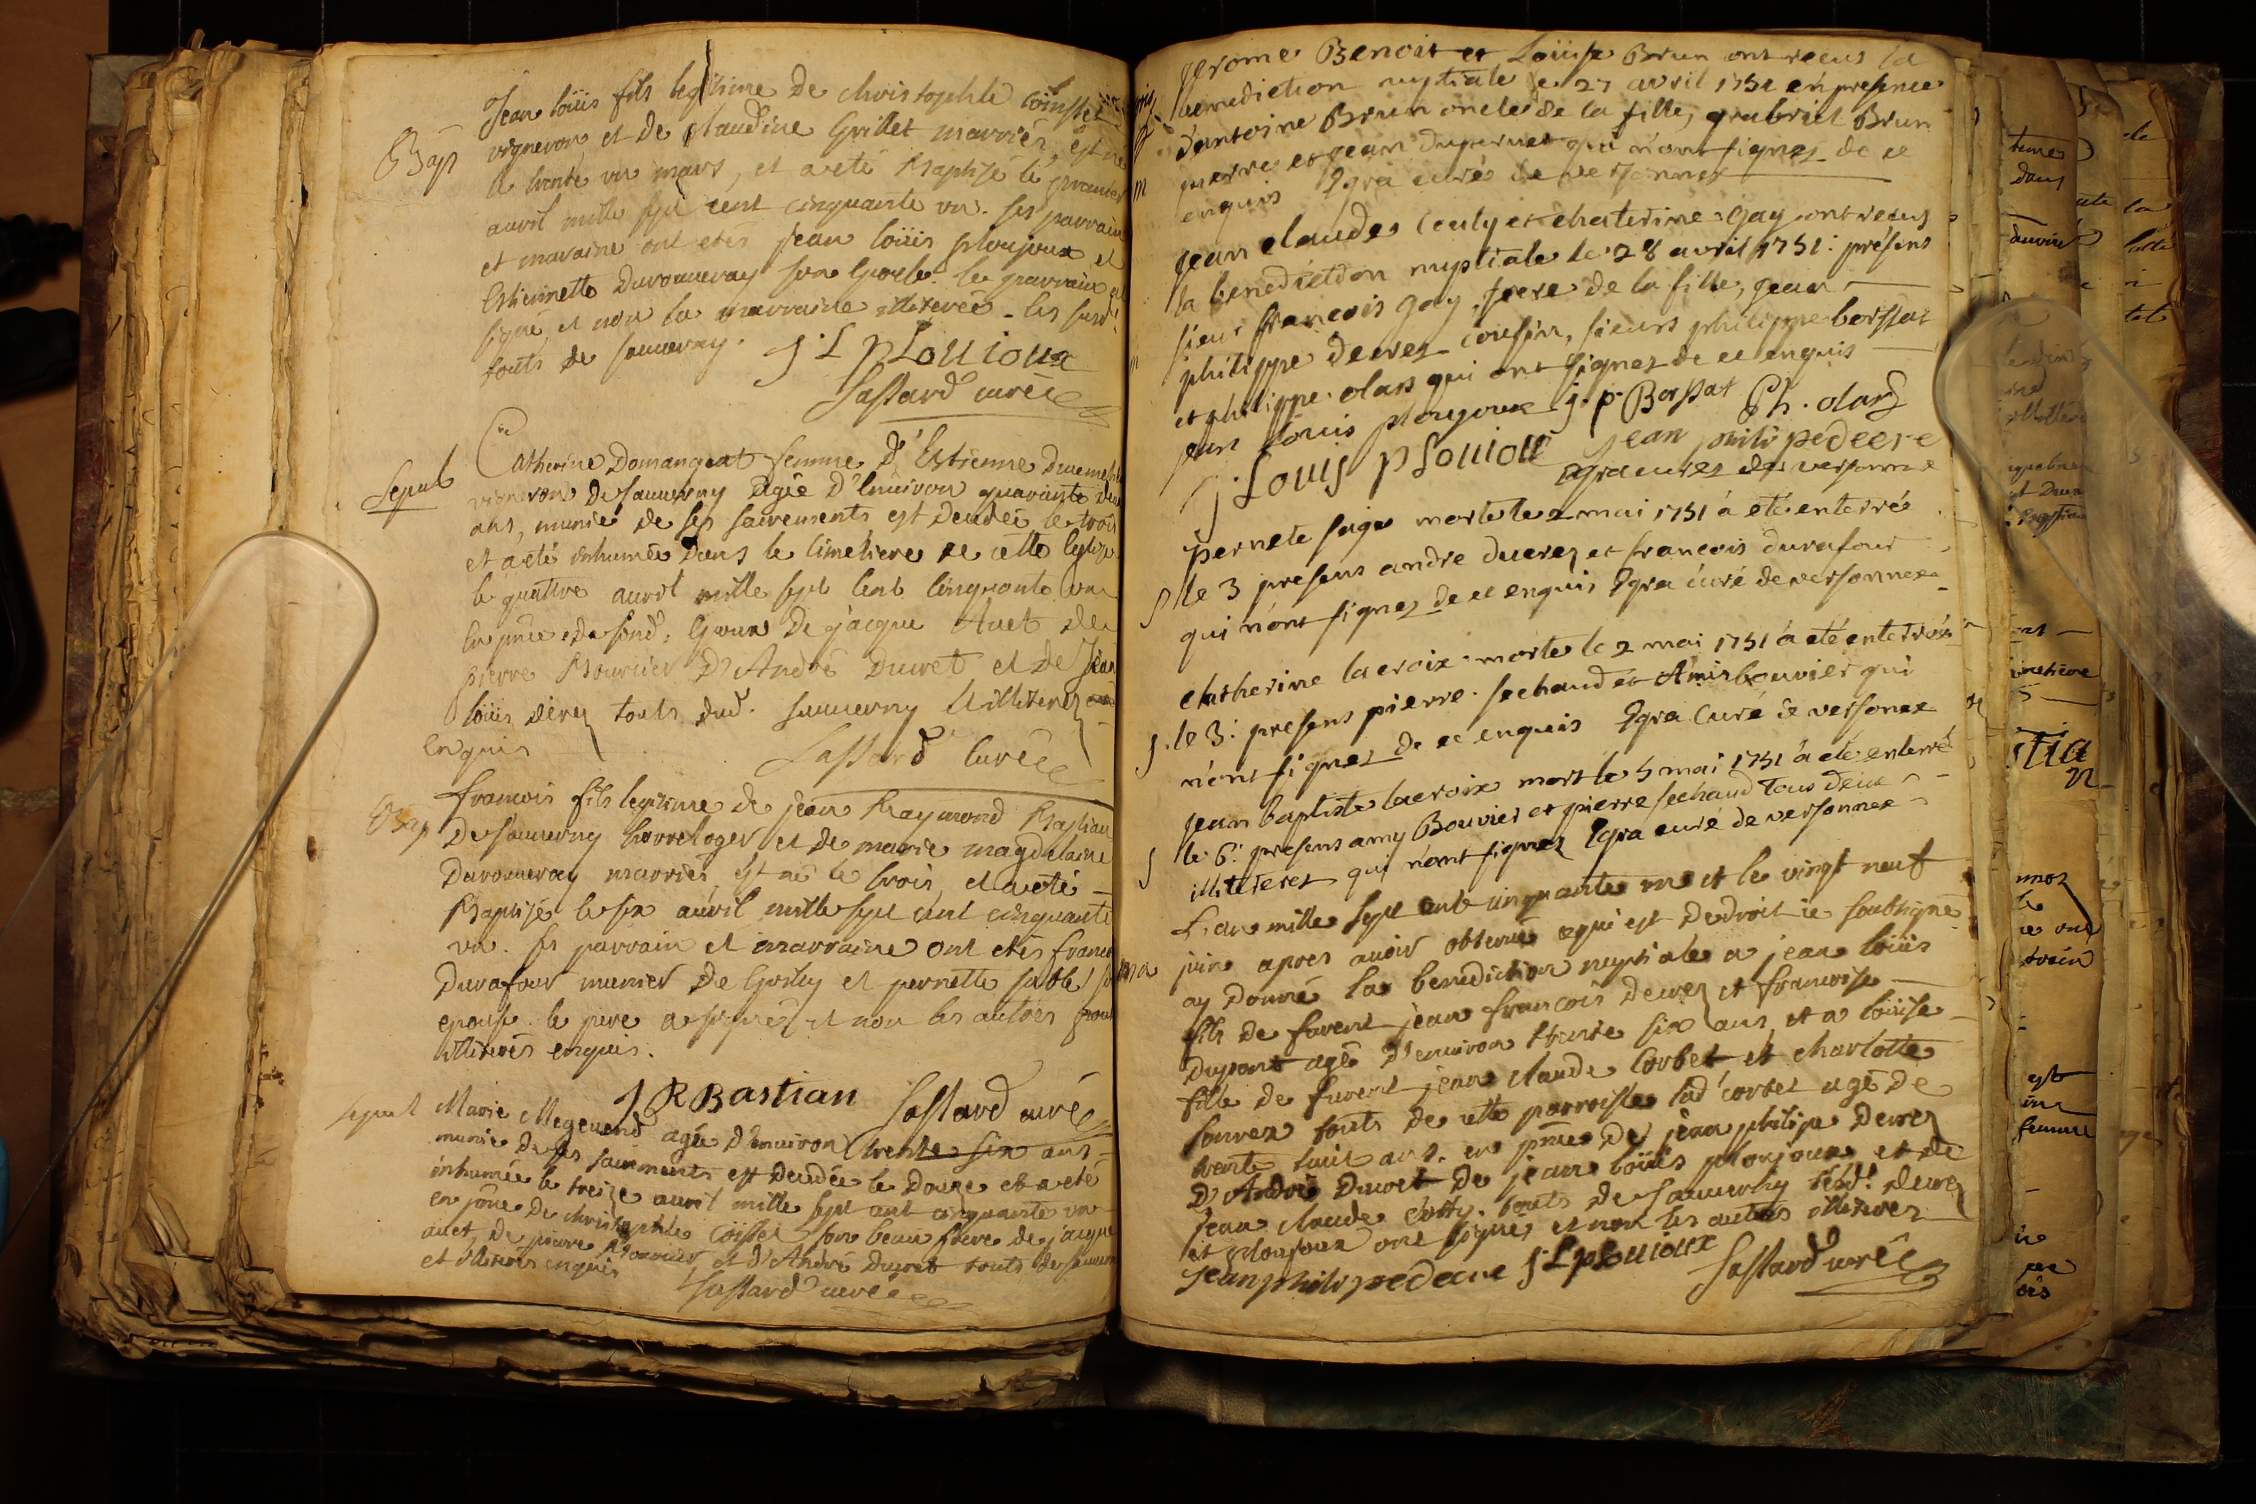 Bap
Jean loüis fils legitime de christophle Coinssel
vigneron et de claudine Grillet marriés, est né
le trente un mars, et a eté Baptisé le premier
avril mille sept cent cinquante un. ses parrain
et maraine ont etés jean loüis ploujoux et
Estiennette Duromeray son Epouse. le parrain a
signé et non la marraine illiterée. les susd.
touts de sauverny.
J. L pLouioux
Sassard curé
Sepult
Catherine Domangeat femme d'Estienne
vigneron de sauverny agée d'environ quarante deux
ans, munie de ses sacrements est decedée le trois
et a eté inhumée dans le cimetiere de cette Eglise
le quattre avril mille sept cent cinquante un
en pnce de sond. Epoux de jacque Auet de
pierre Mourier d'André Ducret et de Jean
loüis derez touts dud. sauverny illiterez
enquis
Sassard curé
Bap
francois fils legitime de jean Raymond Bastian
de sauverny horreloger et de marie magdelaine
Duromeray marriés est né le trois, et a eté
Baptisé le six avril mille sept cent cinquante
un. ses parrain et marraine ont etés francois
Durafour munier de Grilly et pernette
epouse. le pere a signé et non les autres pour
illiterés enquis.
J R Bastian Sassard curé
sepult
Marie Megevend agée d'environ trente six ans
munie de ses sacrements est decedée le douze et a eté
inhumée le treize avril mille sept cent cinquante un
en pnce de christophle Coissel son beau frere de jacque
auet, de pierre Mourier, et d'André Ducret touts de sauverny
et illiterés enquis
Sassard curé
jerome Benoit et Loüise Brun ont recus la
benediction nuptiale le 27 avril 1751 en presence
d'antoine Brun oncle de la fille, gabriel Brun
pierre et jean dupernet qui n'ont signez de ce
enquis Egra curé de versonnex
jean claudes Couly et chaterine gay ont recus
la benediction nuptiale le 28 avril 1751: présens
sieur francois gay frere de la fille, jean
philippe decrez cousin, sieurs philippe borssat
et philippe olarz qui ont signez de ce enquis
jean louis ploujoux j. p. Borssat Ph. olarz
J. Louis pLouiou jean philipe decre
Egra curez de versonnex
S
pernete sage morte le 2 mai 1751 a eté enterré
le 3 presens andre ducrez et francois durafour
qui n'ont signez de ce enquis Egra curé de versonnex
S.
chatherine lacroix morte le 2 mai 1751 a eté enterrée
le 3: presens pierre sechaud et Ami bouvier qui
n'ont signez de ce enquis Egra Curé de versonex
S
jean baptiste lacroix mort le 5 mai 1751 a eté enterré
le 6: presens amy Bouvier et pierre sechaud tous deux
illiterez qui n'ont signez Egra curé de versonnex
ma
L'an mille sept cent cinquante un et le vingt neuf
juin apres avoir observé ce qui est de droit je soubsigné
ay donné la benediction nuptiale a jean loüis
fils de furent jean francois decrez et francoise
dupont agé d'environ trente six ans, et a loüise
fille de furent jean claude Corbet et charlotte
touts de cette parroisse lad corbet agé de
trente huit ans. en pnce de jean philipe decrez
d'André Ducret de jean loüis ploujoux et de
jean claude Cotty. touts de sauverny led. decrez
et ploujoux ont signés et non les autres illiterez
jean philipe decre J. L pLouioux Sassard curé